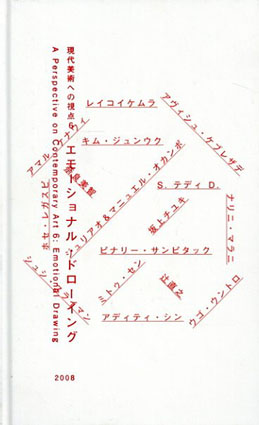 現代美術への視点6 エモーショナル・ドローイング
A Perspective on Contemporary Art 6: Emotional Drawing
レイコイケムラ
アヴィシュ・ケブレザデ
キム・ジュンウク
アマル・ケナウイ
奈良美智
ジュリアオ&マニュエル・オカンポ
S. テディ D.
坂上チユキ
ナリニ・マラニ
ピナリー・サンピタック
ミトゥ・セン
辻直之
アディティ・シン
ウゴ・ウントロ
2008